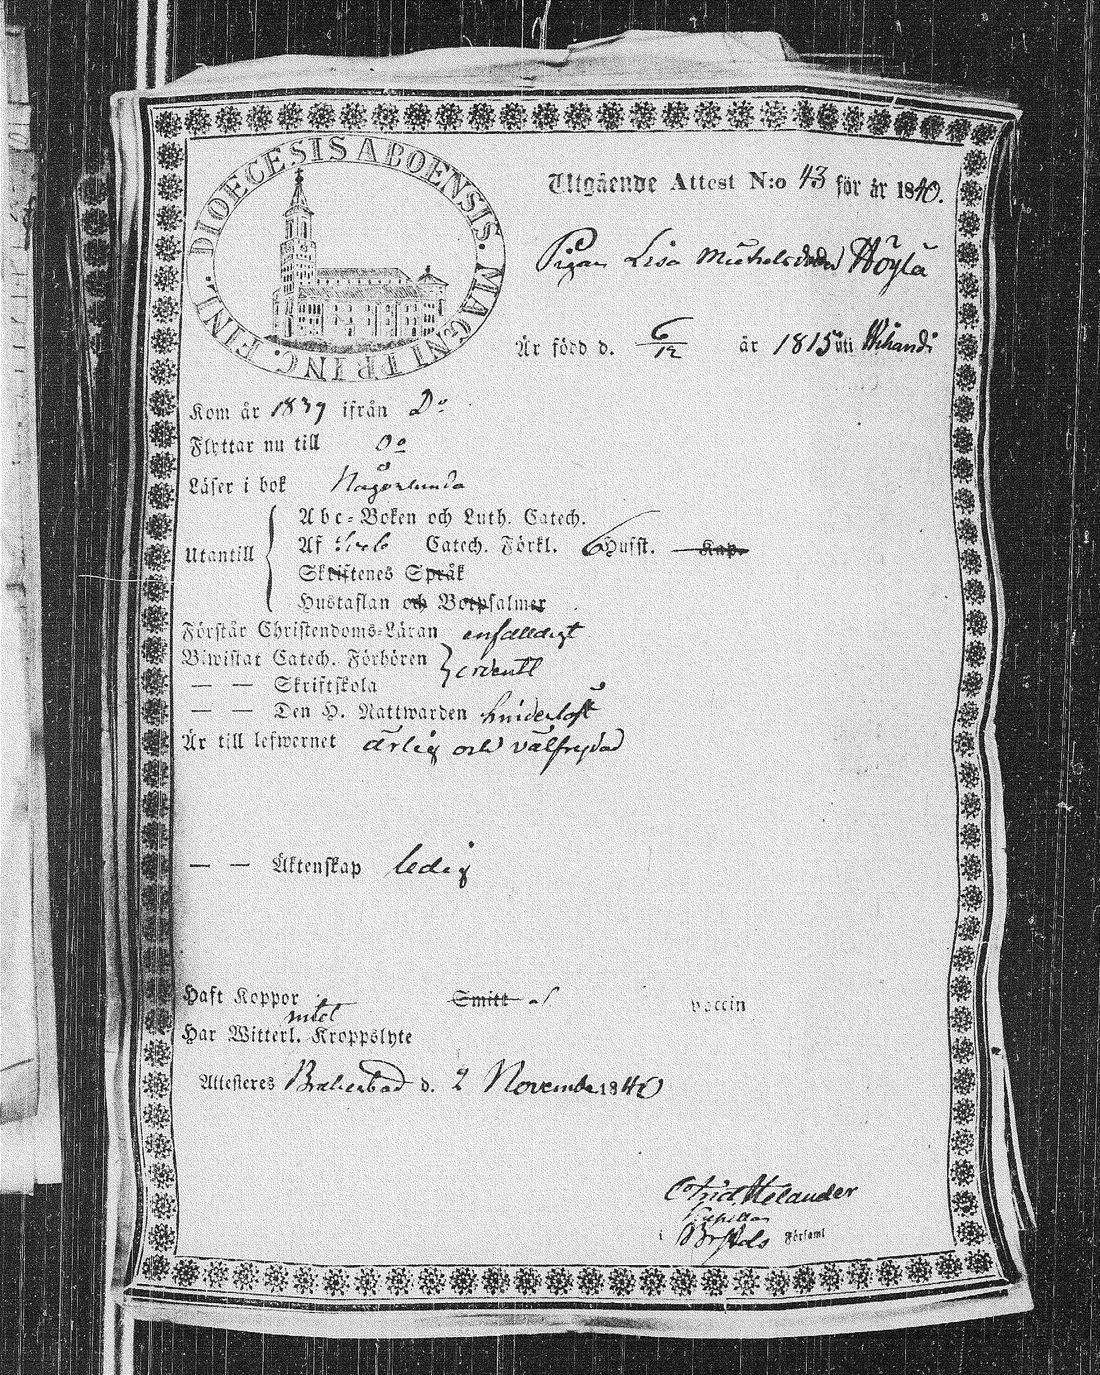 DIOECESIS ABOENSIS. MAGNI PRINC. FINL.
Utgående Attest N:o 43 för år 1840.
Pigan Lisa Michelsdoter Höylä
Är född d. 6/12 år 1815 uti Vihandi
Kom år 1839 ifrån Do
Flyttar nu till Do
Läser i bok Någorlunda
Abc-Boken och Luth. Catech.
Utantill Af Catech. Förkl. 6 Husst. Kap.
Skriftenes Språk
Hustaflan och Botpsalmer
Förstår Christendoms-Läran enfaldigt
Biwistat Catech. Förhören ordentl
— — Skriftskola
— — Den H. Nattwarden hinderlöst
Är till lefwernet ärlig och välfrejdad
— — Äktenskap ledig
Haft Koppor Smitt af vaccin
intet
Har Witterl. Kroppslyte
Attesteres Brahestad d. 2 November 1840
Helander
Kapellan
i Brsteds Församl